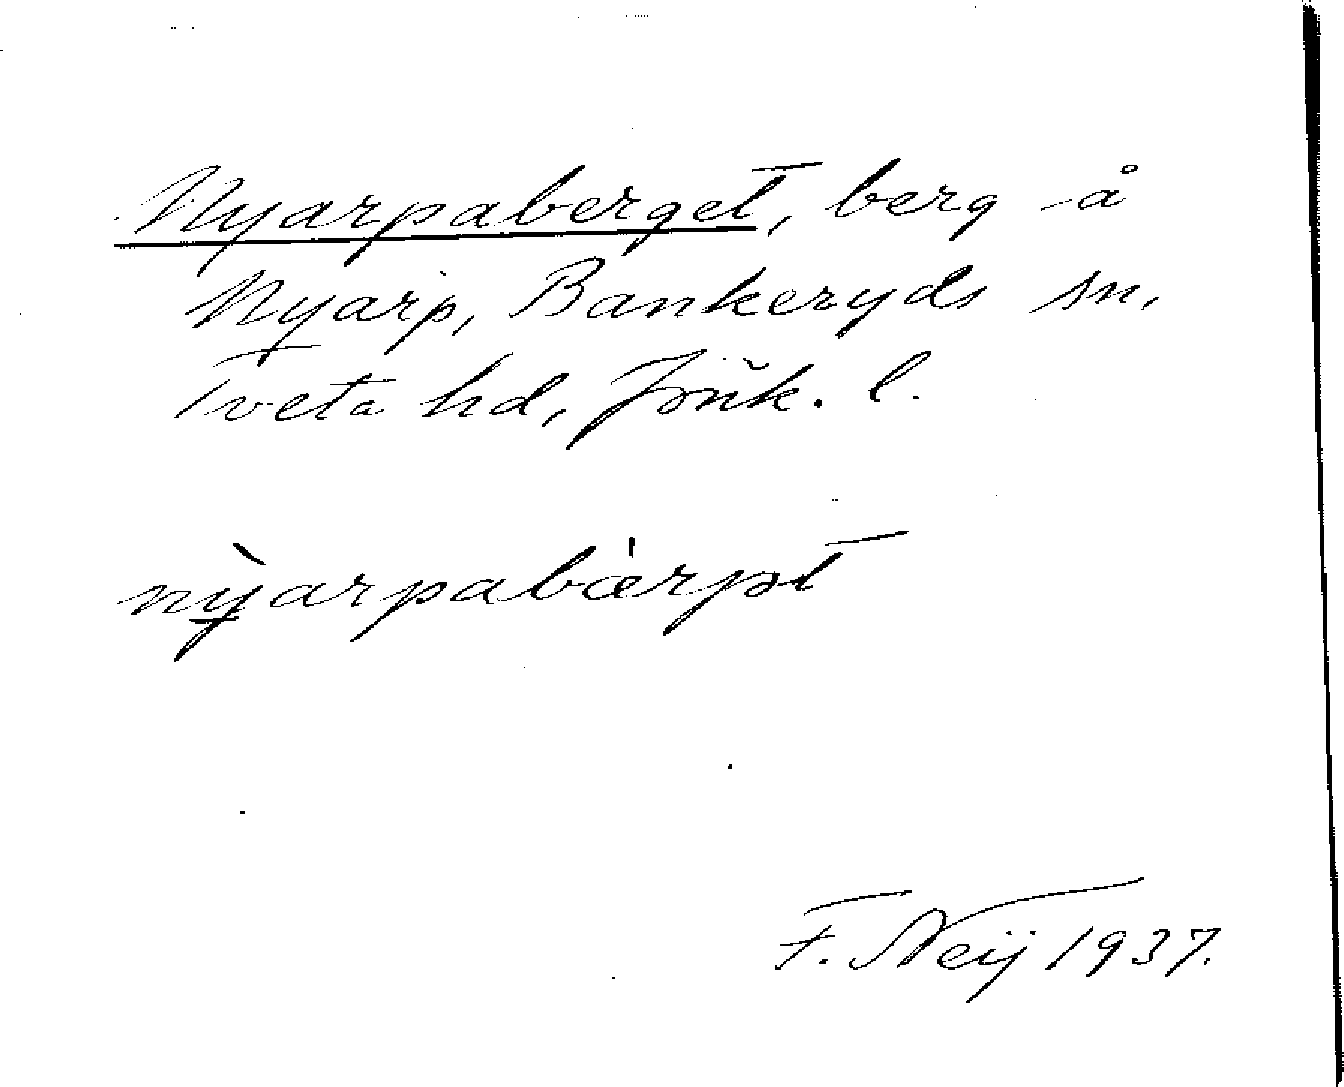 Nyarpaberget, berg å
Nyarp, Bankeryds sn,
Tveta hd, Jönk. l.
nỳarpabærjət
F. Neij 1937.